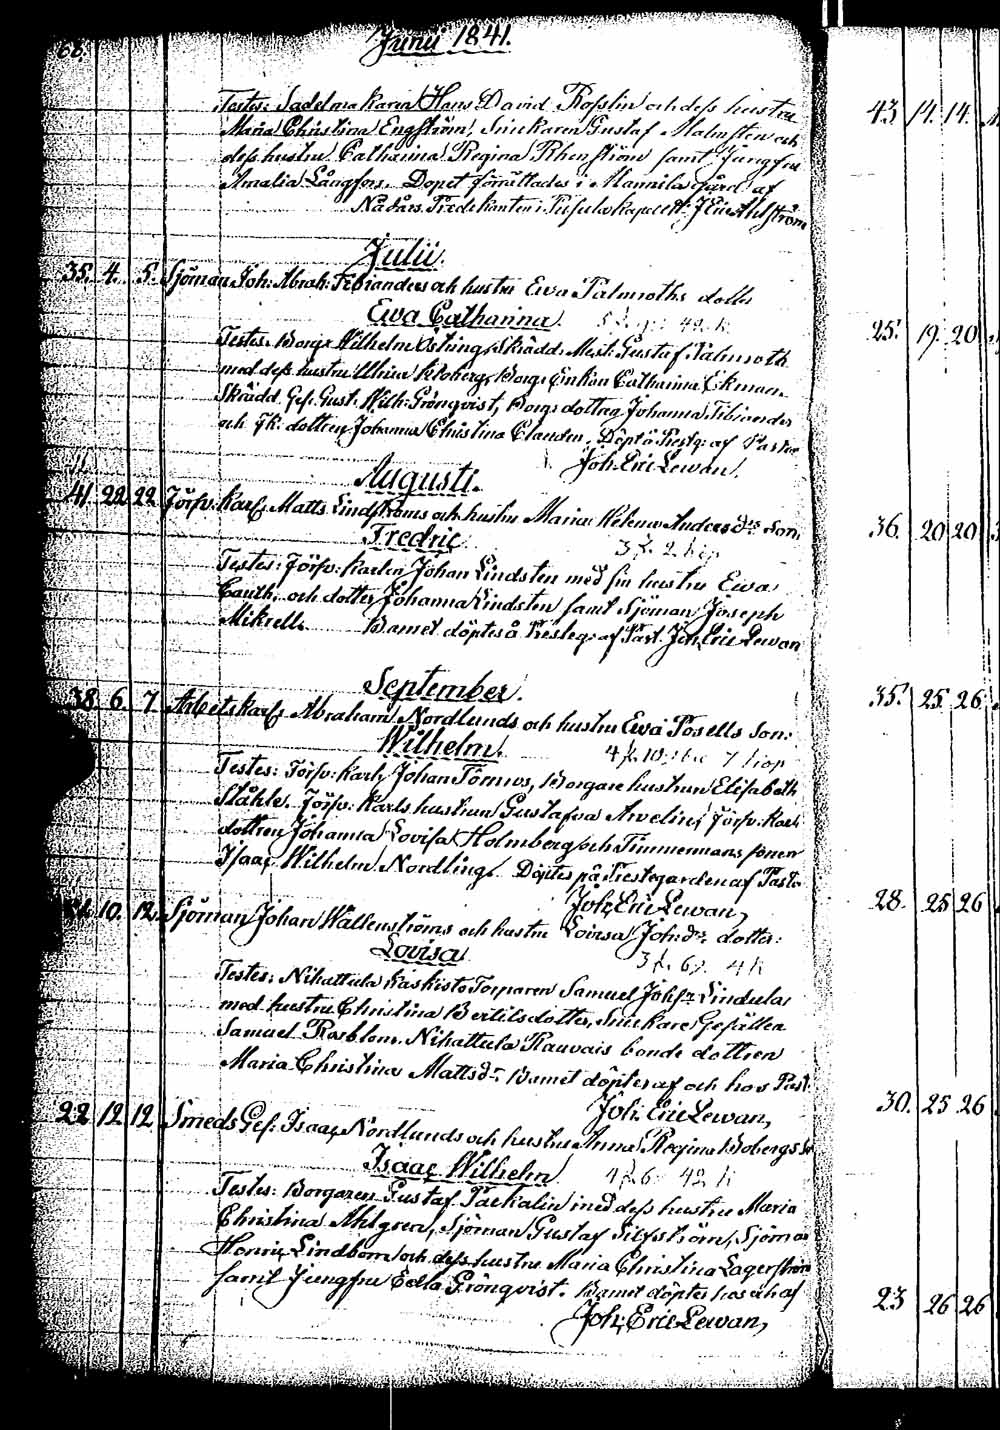 66.
Junii 1841.
Testes: Sadelmakaren Hans David Rosslin och dess hustru
Maria Christina Engström, Snickaren Gustaf Malmsten och
dess hustru Catharina Regina Rhenström samt Jungfru
Amalia Långfors. Dopet förrättades i Mannila gård af
Nådårs Predikanten i Kapell J Eric Ahlström
Julii.
35. 4. 5. Sjöman Joh: Abrah: Tibianders och hustru Ewa Palmroths dotter
Ewa Catharina.
Testes. Borg: Wilhelm Östring, Skrädd. Mest: Gustaf Palmroth
med dess hustru Ulrica Kloberg, Borg: Enkan Catharina Ekman,
Skrädd. Ges. Gust. Wilh: Grönqvist, Borg: dottren Johanna Tibiander
och dottren Johanna Christina Clauden. Döpt å Prestg: af Pastor
Joh. Eric Lewan.
Augusti.
41. 22 22 Försv. Karl. Matts Lindströms och hustru Maria Helena Anders dr Son,
Fredric
Testes: Försv: karlen Johan Lindsten med sin hustru Ewa
Cauth. och dotter Johanna Lindsten samt Sjöman Joseph
Mikrell. Barnet döptes å Presteg: af Past. Joh. Eric Lewan
September.
38 6. 7. Arbetskarl. Abraham Nordlunds och hustru Ewa Posells Son:
Wilhelm.
Testes: Försv: Karl, Johan Törnros, Borgare hustrun Elisabeth
Ståhle. Försv: Karls hustrun Gustafva Awelin, Försv: Karls
dottren Johanna Lovisa Holmberg och Timmermans sonen
Isaac Wilhelm Nordling. Döptes på Prestegården af Pastor
Joh, Eric Lewan,
10. 12. Sjöman Johan Wallenströms och hustru Lovisa Joh: dr. dotter:
Lovisa
Testes: Nihattula Kaskisto Torparen Samuel Johsn Lindula
med hustru Christina Bertilsdotter, Snickare Gesällen
Samuel Rosblom, Nihattula Rauvais bonde dottren
Maria Christina Matts dr. Barnet döptes af och hos Past.
Joh: Eric Lewan,
22 12 12 Smeds Ges. Isaac Nordlunds och hustru Anna Regina Bobergs
Isaac Wilhelm
Testes: Borgaren Gustaf Packalin med dess hustru Maria
Christina Ahlgren, Sjöman Gustaf Silfström, Sjöman
Henric Lindbom och dess hustru Maria Christina Lagerström
samt Jungfru Edla Grönqvist. Barnet döptes hos och af
Joh, Eric Lewan,
43 14. 14.
25. 19. 20
36. 20 20
35. 25 26
28. 25 26
30. 25 26
23 26 26